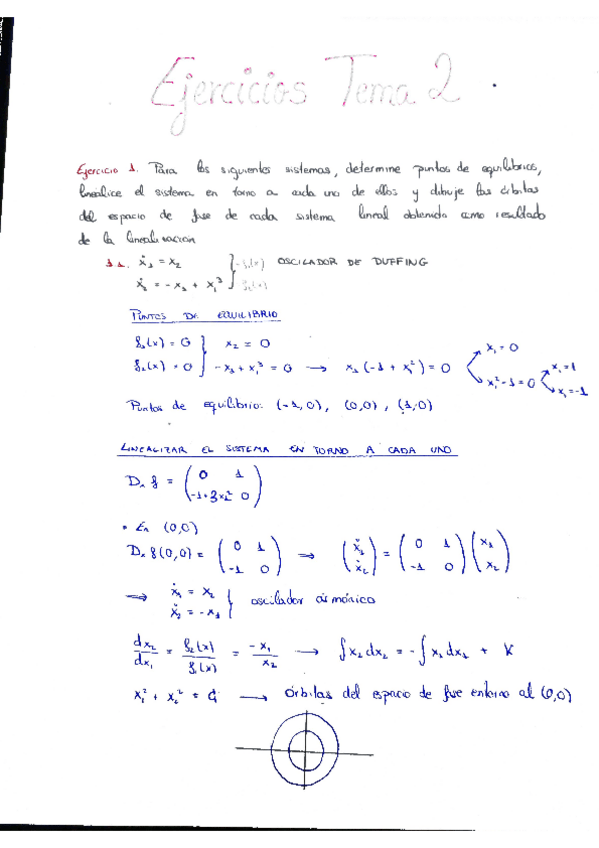 Ejercicios Tema 2
Ejercicio 1. Para los siguientes sistemas, determine puntos de equilibrios,
linealice el sistema en torno a cada uno de ellos y dibuje las órbitas
del espacio de fase de cada sistema lineal obtenido como resultado
de la linealización
1.1. ẋ₁ = x₂ } f₁(x) OSCILADOR DE DUFFING
ẋ₂ = -x₁ + x₁³ } f₂(x)
PUNTOS DE EQUILIBRIO
f₁(x) = 0 } x₂ = 0
f₂(x) = 0 } -x₁ + x₁³ = 0 → x₁(-1 + x₁²) = 0 x₁ = 0
x₁² - 1 = 0 x₁ = 1
x₁ = -1
Puntos de equilibrio: (-1,0), (0,0), (1,0)
LINEALIZAR EL SISTEMA EN TORNO A CADA UNO
Dₓ f = ( 0 1
-1+3x₁² 0 )
• En (0,0)
Dₓ f(0,0) = ( 0 1 ; -1 0 ) → ( ẋ₁ ; ẋ₂ ) = ( 0 1 ; -1 0 ) ( x₁ ; x₂ )
→ ẋ₁ = x₂
ẋ₂ = -x₁ } oscilador armónico
dx₂/dx₁ = f₂(x)/f₁(x) = -x₁/x₂ → ∫x₂dx₂ = -∫x₁dx₁ + K
x₁² + x₂² = C₁ → órbitas del espacio de fase entorno al (0,0)